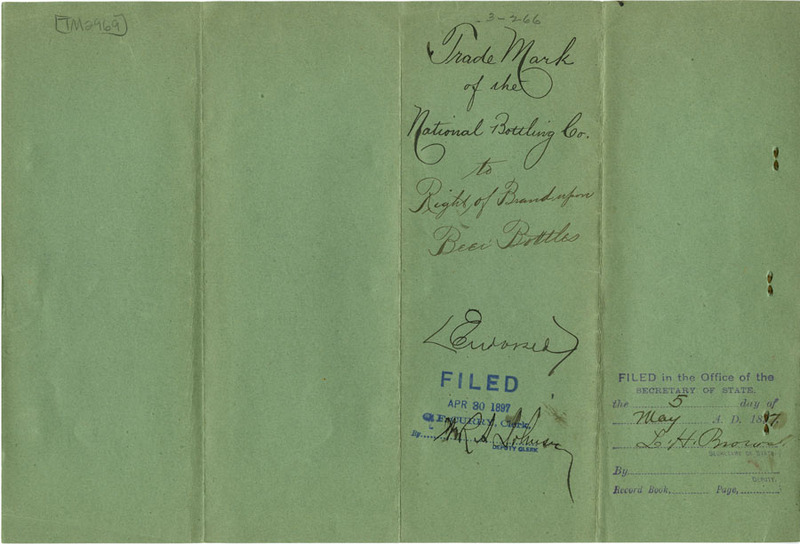 [TM2969]
3-266
Trade Mark
of the
National Bottling Co.
to
Right of Brand upon
Beer Bottles
FILED
APR 30 1897
C.F. CURRY, Clerk,
By
DEPUTY CLERK
FILED in the Office of the
SECRETARY OF STATE,
the 5 day of
May A. D. 1897
L. H. Brown
SECRETARY OF STATE
By
DEPUTY.
Record Book, Page,